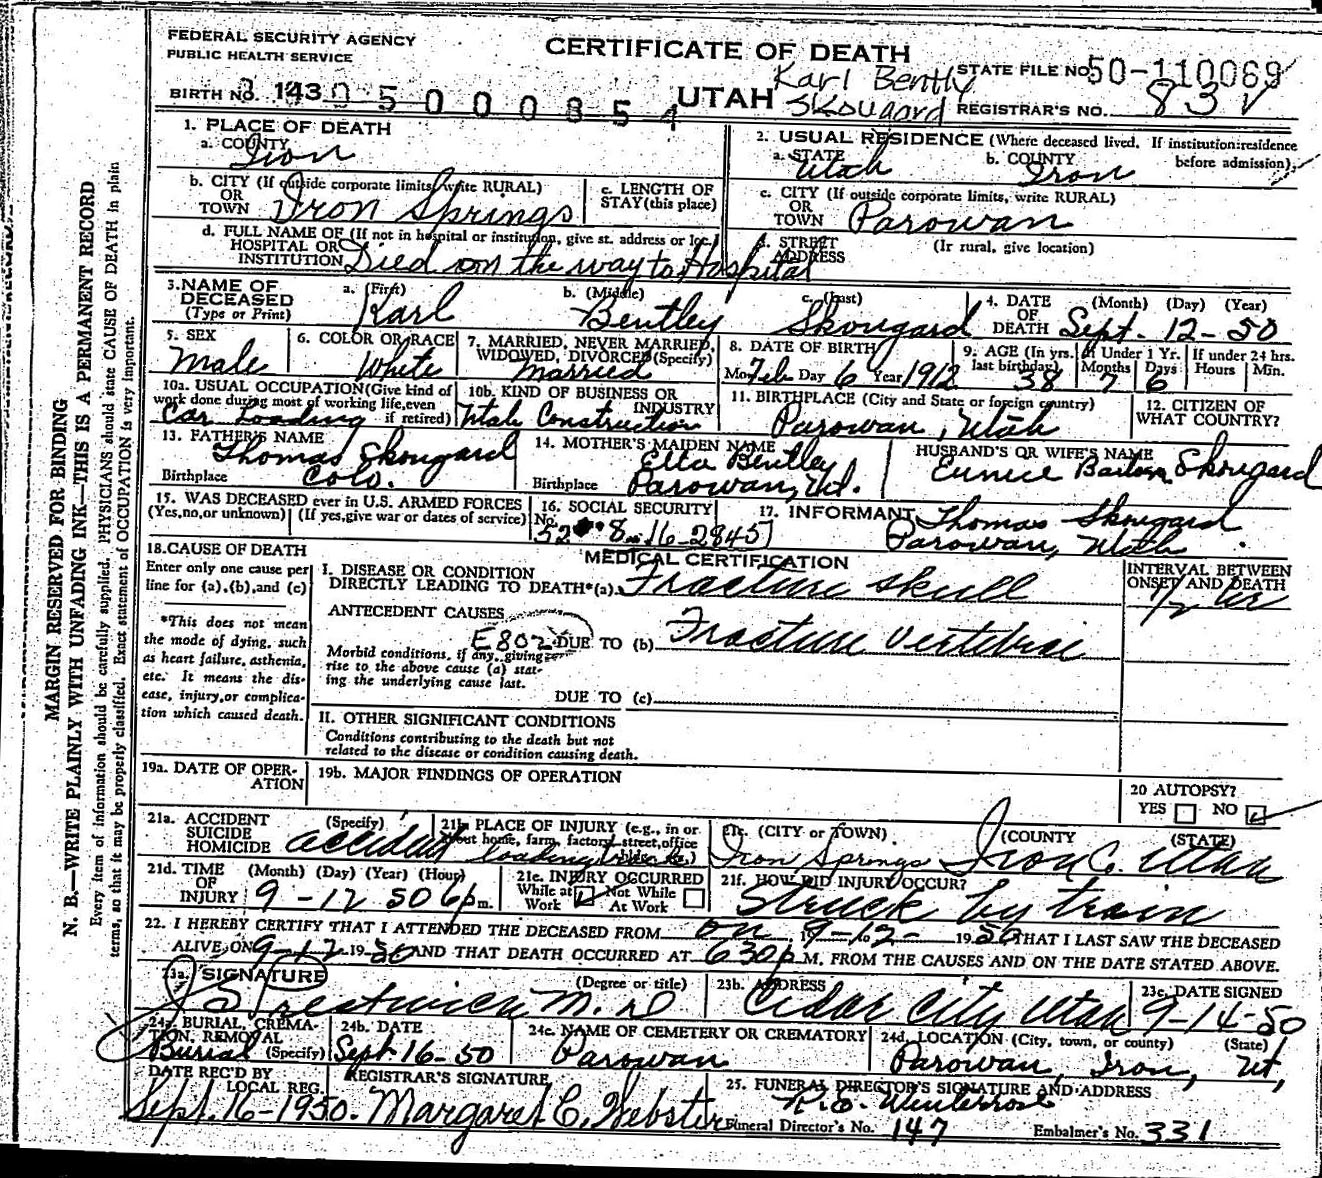 FEDERAL SECURITY AGENCY
PUBLIC HEALTH SERVICE
CERTIFICATE OF DEATH
Karl Bently
Skougard
STATE FILE NO. 50-110069
BIRTH NO. 143
0 5 0 0 0 8 5 4
UTAH
REGISTRAR'S NO. 83
1. PLACE OF DEATH
a. COUNTY Iron
2. USUAL RESIDENCE (Where deceased lived. If institution: residence before admission).
a. STATE Utah b. COUNTY Iron
b. CITY (If outside corporate limits, write RURAL) OR TOWN Iron Springs
c. LENGTH OF STAY (this place)
c. CITY (If outside corporate limits, write RURAL) OR TOWN Parowan
d. FULL NAME OF (If not in hospital or institution, give st. address or loc.) HOSPITAL OR INSTITUTION Died on the way to Hospital
d. STREET ADDRESS (If rural, give location)
3. NAME OF DECEASED (Type or Print)
a. (First) Karl b. (Middle) Bentley c. (Last) Skougard
4. DATE OF DEATH (Month) (Day) (Year) Sept. 12-50
5. SEX Male
6. COLOR OR RACE White
7. MARRIED, NEVER MARRIED, WIDOWED, DIVORCED (Specify) Married
8. DATE OF BIRTH Mo. Feb Day 6 Year 1912
9. AGE (In yrs. last birthday) 38
If Under 1 Yr. Months 7 Days 6
If under 24 hrs. Hours Min.
10a. USUAL OCCUPATION (Give kind of work done during most of working life, even if retired) Car Loading
10b. KIND OF BUSINESS OR INDUSTRY Utah Construction
11. BIRTHPLACE (City and State or foreign country) Parowan, Utah
12. CITIZEN OF WHAT COUNTRY?
13. FATHER'S NAME Thomas Skougard
Birthplace Colo.
14. MOTHER'S MAIDEN NAME Etta Bentley
Birthplace Parowan, Ut.
HUSBAND'S OR WIFE'S NAME Eunice Skougard
15. WAS DECEASED ever in U.S. ARMED FORCES
(Yes, no, or unknown) (If yes, give war or dates of service)
16. SOCIAL SECURITY No. 52 8-16-2845
17. INFORMANT Thomas Skougard
Parowan, Utah
18. CAUSE OF DEATH
Enter only one cause per line for (a), (b), and (c)
*This does not mean the mode of dying, such as heart failure, asthenia, etc. It means the disease, injury, or complication which caused death.
MEDICAL CERTIFICATION
I. DISEASE OR CONDITION DIRECTLY LEADING TO DEATH* (a) Fracture skull
INTERVAL BETWEEN ONSET AND DEATH 1/2 hr
ANTECEDENT CAUSES
E802
Morbid conditions, if any, giving rise to the above cause (a) stating the underlying cause last.
DUE TO (b) Fracture vertebrae
DUE TO (c)
II. OTHER SIGNIFICANT CONDITIONS
Conditions contributing to the death but not related to the disease or condition causing death.
19a. DATE OF OPERATION
19b. MAJOR FINDINGS OF OPERATION
20 AUTOPSY?
YES NO
21a. ACCIDENT SUICIDE HOMICIDE (Specify) accident
21b. PLACE OF INJURY (e.g., in or about home, farm, factory, street, office bldg., etc.) loading
21c. (CITY or TOWN) (COUNTY) (STATE)
Iron Springs Iron Co. Utah
21d. TIME OF INJURY (Month) (Day) (Year) (Hour) 9-12 50 6 p m.
21e. INJURY OCCURRED While at Work Not While At Work
21f. HOW DID INJURY OCCUR?
Struck by train
22. I HEREBY CERTIFY THAT I ATTENDED THE DECEASED FROM on 9-12- 1950 THAT I LAST SAW THE DECEASED
ALIVE ON 9-12 19-50 AND THAT DEATH OCCURRED AT 630 p M. FROM THE CAUSES AND ON THE DATE STATED ABOVE.
23a. SIGNATURE (Degree or title) J S Prestwich M.D
23b. ADDRESS Cedar City Utah
23c. DATE SIGNED 9-14-50
24a. BURIAL, CREMATION, REMOVAL (Specify) Burial
24b. DATE Sept 16-50
24c. NAME OF CEMETERY OR CREMATORY Parowan
24d. LOCATION (City, town, or county) (State) Parowan, Iron, Ut,
DATE REC'D BY LOCAL REG. Sept. 16-1950.
REGISTRAR'S SIGNATURE Margaret C. Webster
25. FUNERAL DIRECTOR'S SIGNATURE AND ADDRESS
Funeral Director's No. 147 Embalmer's No. 331
MARGIN RESERVED FOR BINDING
N. B.—WRITE PLAINLY WITH UNFADING INK—THIS IS A PERMANENT RECORD
Every item of information should be carefully supplied. PHYSICIANS should state CAUSE OF DEATH in plain
terms, so that it may be properly classified. Exact statement of OCCUPATION is very important.